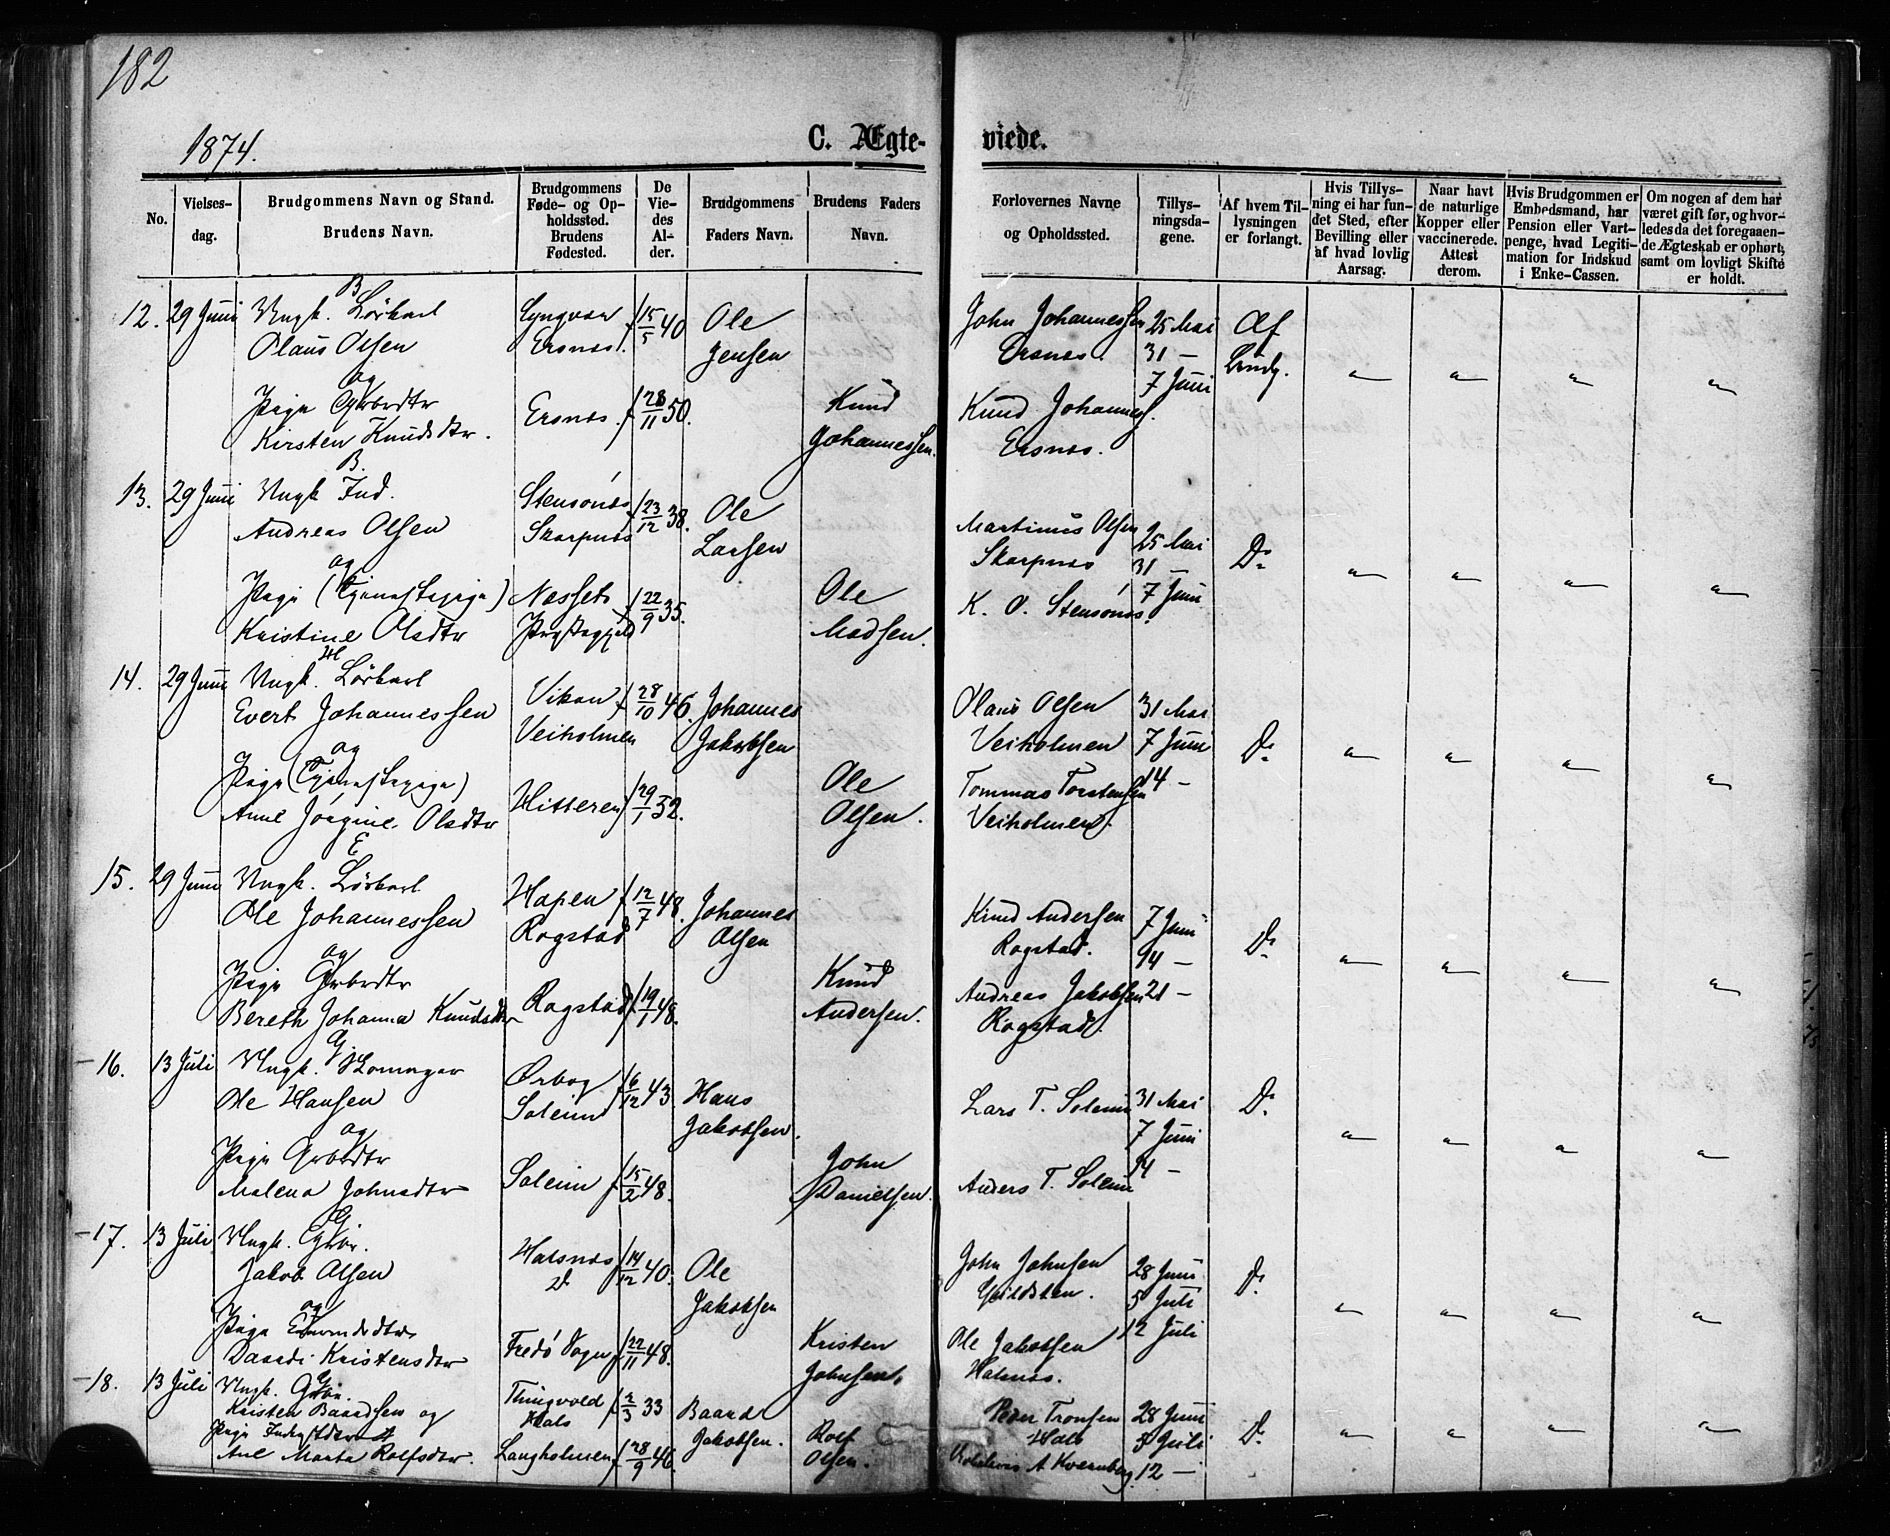 182
1874.
C. Ægte-
viede.
No.
Vielses-
dag.
Brudgommens Navn og Stand.
Brudens Navn.
Brudgommens
Føde- og Op-
holdssted.
Brudens
Fødested.
De
Vie-
des
Al-
der.
Brudgommens
Faders Navn.
Brudens Faders
Navn.
Forlovernes Navne
og Opholdssted.
Tillys-
ningsda-
gene.
Af hvem Til-
lysningen
er forlangt.
Hvis Tillys-
ning ei har fun-
det Sted, efter
Bevilling eller
af hvad lovlig
Aarsag.
Naar havt
de naturlige
Kopper eller
vaccinerede.
Attest
derom.
Hvis Brudgommen er
Embedsmand, har
Pension eller Vart-
penge, hvad Legiti-
mation for Indskud
i Enke-Cassen.
Om nogen af dem har
været gift før, og hvor-
ledes da det foregaaen-
de Ægteskab er ophørt,
samt om lovligt Skifte
er holdt.
B
12. 29 Juni Ungk. Lørkarl
Olaus Olsen
og
Pige Gbrdtr
Kirsten Knudsdtr.
Lyngvær
Ersnes.
Ersnes.
f 15/5 40
f 28/11 50.
Ole
Jensen
Knud
Johannessen.
John Johannessen
Ersnes.
Knud Johanness.
Ersnes.
25 Mai
31 —
7 Juni
Af
Brudg.
B.
13. 29 Juni Ungk Ind.
Andreas Olsen
og
Pige (Tjenestepige)
Kristine Olsdtr
Stensønes
Skarpnes
Nesset
Prgstegjeld
f 23/12 38.
f 22/9 35.
Ole
Larsen
Ole
Madsen.
Martinus Olsen
Skarpnes
K. O. Stensønes.
25 Mai
31 —
7 Juni
Do
H
14. 29 Juni Ungk. Lørkarl
Evert Johannessen
og
Pige (Tjenestepige)
Anne Jørgine Olsdtr
Vikan
Veiholmen
Hitteren
f 28/10 46.
f 29/1 52.
Johannes
Jakobsen
Ole
Olsen.
Olaus Olsen
Veiholmen
Tommas Torstensen
Veiholmen.
31 Mai
7 Juni
14 —
Do
E
15. 29 Juni Ungk. Lørkarl
Ole Johannessen
og
Pige Gbrdtr
Bereth Johanna Knudsdtr
Hapen
Rogstad
Rogstad
f 12/7 48.
f 19/1 48.
Johannes
Olsen
Knud
Andersen.
Knud Andersen
Rogstad.
Andreas Jakobsen
Rogstad.
7 Juni
14 —
21 —
Do
G
16. 13 Juli Ungk.
Ole Hansen
og
Pige Gbrdtr
Malena Johnsdtr
Ørbog
Soleim
Soleim
f 6/12 43
f 15/2 48.
Hans
Jakobsen.
John
Danielsen.
Lars T. Soleim
Anders T. Soleim
31 Mai
7 Juni
14 —
Do
G
17. 13 Juli Ungk. Gbr.
Jakob Olsen
og
Pige
Kristensdtr
Halsnes
Do
Fredø Sogn
f 14/12 40.
f 22/11 48.
Ole
Jakobsen
Kristen
Johnsen.
John Johnsen
Ole Jakobsen
Halsnes.
28 Juni
5 Juli
12 Juli
Do
G
18. 13 Juli Ungk. Gbr.
Kristen Baardsen og
Pige
Ane Marta Rolfsdtr.
Thingvold
Hals
Langholmen
f 2/3 33
f 28/9 46.
Baard
Jakobsen.
Rolf
Olsen.
Peder Tronsen
Hals
A Kvernberg
28 Juni
5 Juli
12 —
Do